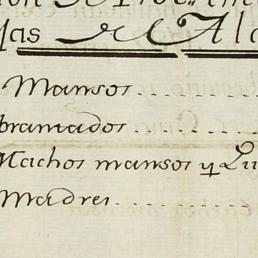 las de Ala
Mansos
bramados
Machos mansos y Qu
Madres